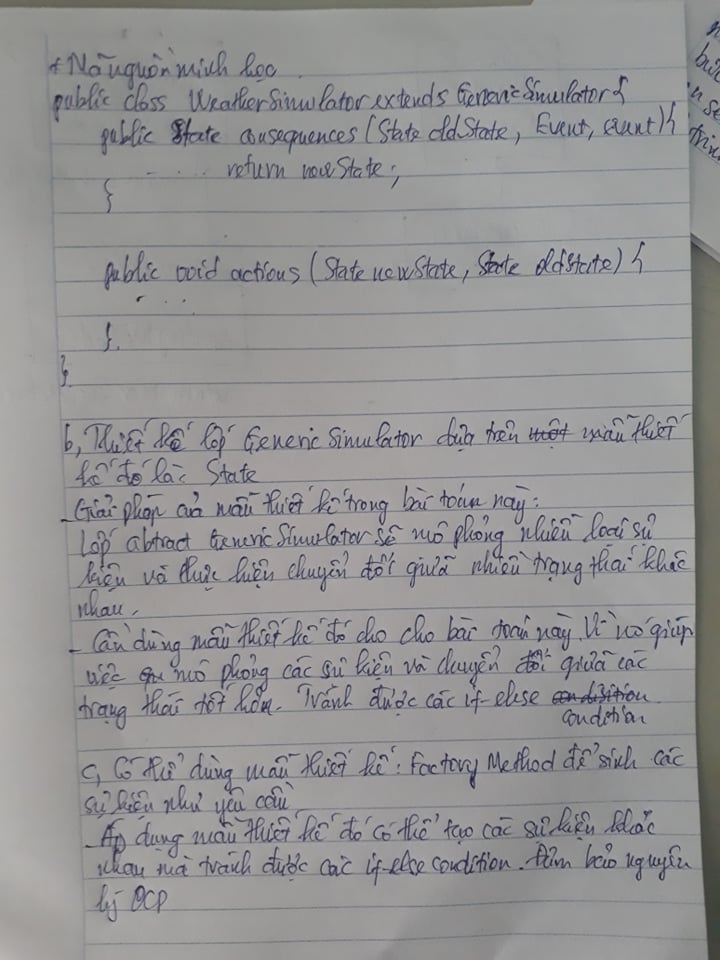 + Mã nguồn minh họa
public class WeatherSimulator extends GenericSimulator {
public State consequences (State oldState, Event, event) {
..... return newState;
}
public void actions (State newState, State oldState) {
....
}.
}.
b, Thiết kế lớp Generic Simulator dựa trên một mẫu thiết
kế đó là: State
- Giải pháp của mẫu thiết kế trong bài toán này:
Lớp abtract Generic Simulator sẽ mô phỏng nhiều loại sự
kiện và thực hiện chuyển đổi giữa nhiều trạng thái khác
nhau.
- Cần dùng mẫu thiết kế đó cho cho bài toán này. Vì nó giúp
việc mô phỏng các sự kiện và chuyển đổi giữa các
trạng thái tốt hơn. Tránh được các if-else condisition
condition
c, Có thể dùng mẫu thiết kế: Factory Method để sinh các
sự kiện như yêu cầu
- Áp dụng mẫu thiết kế đó có thể tạo các sự kiện khác
nhau mà tránh được các if-else condition. Đảm bảo nguyên
lý OCP